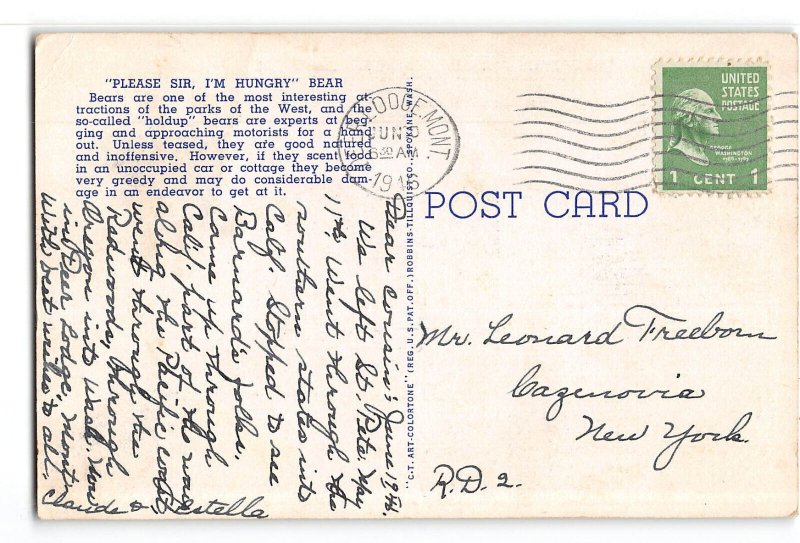 "PLEASE SIR, I'M HUNGRY" BEAR
Bears are one of the most interesting at-
tractions of the parks of the West, and the
so-called "holdup" bears are experts at beg-
ging and approaching motorists for a hand
out. Unless teased, they are good natured
and inoffensive. However, if they scent food
in an unoccupied car or cottage they become
very greedy and may do considerable dam-
age in an endeavor to get at it.
Dear Cousin's June 1948.
We left St. Pete May
11th. Went through the
southern states into
Calif. Stopped to see
Barnard's folks.
Came up through
Calif. part of the way
along the Pacific coast
went through the
Redwoods, through
Oregon into Wash. Now
in Deer Lodge, Mont.
With best wishes to all.
Claude & Estella
"C.T. ART-COLORTONE" (REG. U.S. PAT. OFF.) ROBBINS-TILLQUIST CO., SPOKANE, WASH.
LODGE, MONT.
JUN
6 30 AM
UNITED
STATES
POSTAGE
GEORGE
WASHINGTON
1789-1797
1 CENT 1
POST CARD
Mr. Leonard Freeborn
Cazenovia
New York.
R.D. 2.